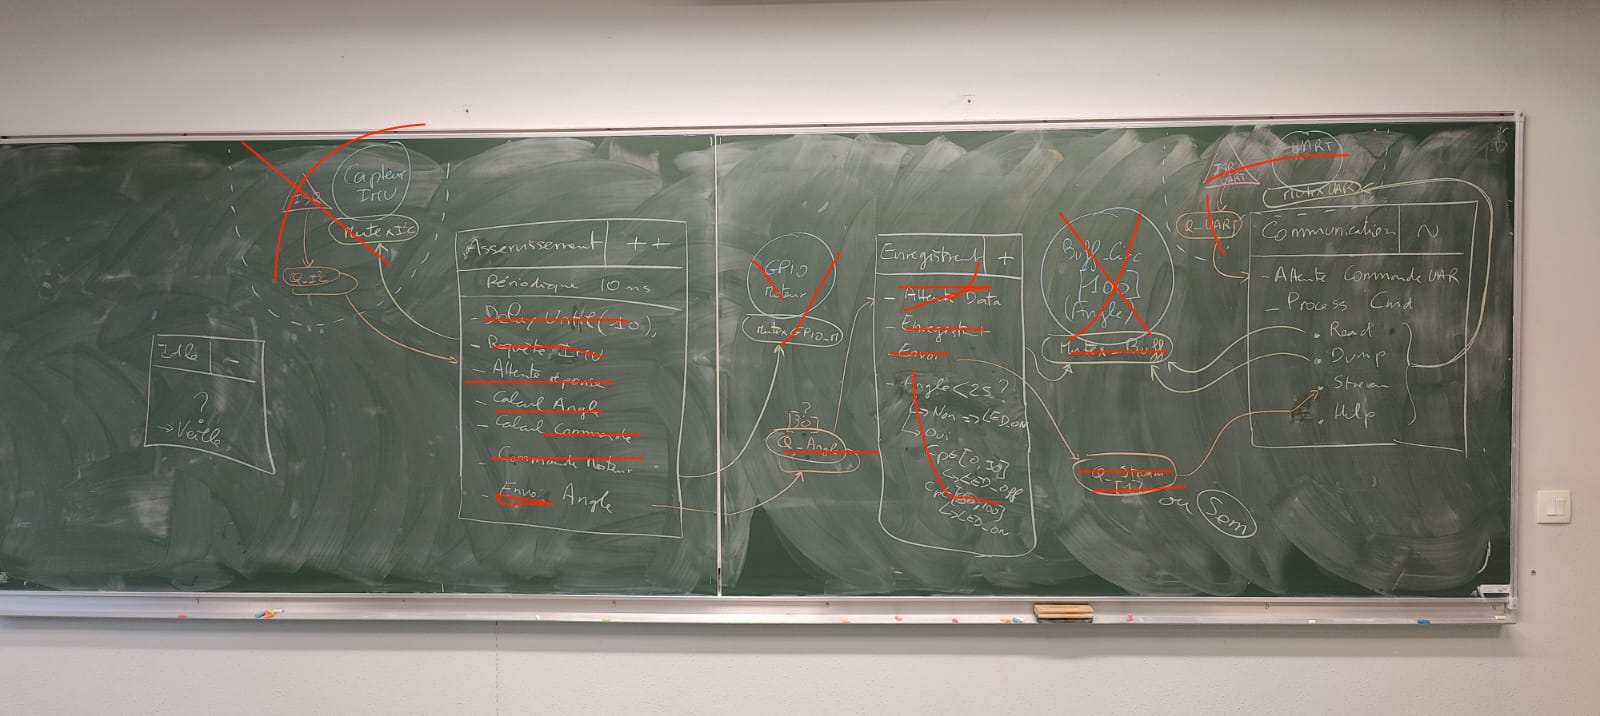 ISR
Capteur
IMU
Mutex I²C
Q_I²C
Idle
-
?
→ Veille
Asservissement
++
Périodique 10 ms
- Delay Until(10);
- Requête IMU
- Attente réponse
- Calcul Angle
- Calcul Commande
- Commande Moteur
- Envoi Angle
GPIO
Moteur
Mutex GPIO_M
?
[30]
Q_Angle
Enregistrement
+
- Attente Data
- Enregistrer
- Envoi
- Angle < 25 ?
↳ Non ⇒ LED_ON
↳ Oui
Cpt [0,30]
↳ LED_off
Cpt [30,100]
↳ LED_ON
Buff_Circ
[100]
(Angle)
Mutex_Buff
Q_Stream
[1]
ou
Sem
ISR
UART
UART
Mutex UART
Q_UART
Communication
~
- Attente Commande UAR
- Process Cmd
. Read
. Dump
. Stream
. Help